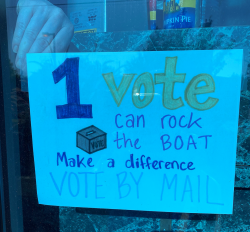 PKIN PIE
1 vote
can rock
the BOAT
VOTE
Make a difference
VOTE BY MAIL